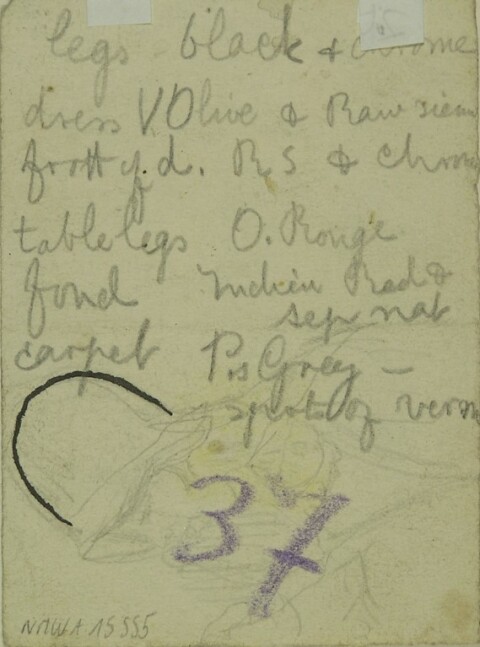 legs black & chrome
dress V Olive & Raw sien
frott of d. R S & chrom
table legs O. Rouge
fond Indien Red &
sep nat
carpet Ps Grey –
spots of verm
37
NMWA 15555